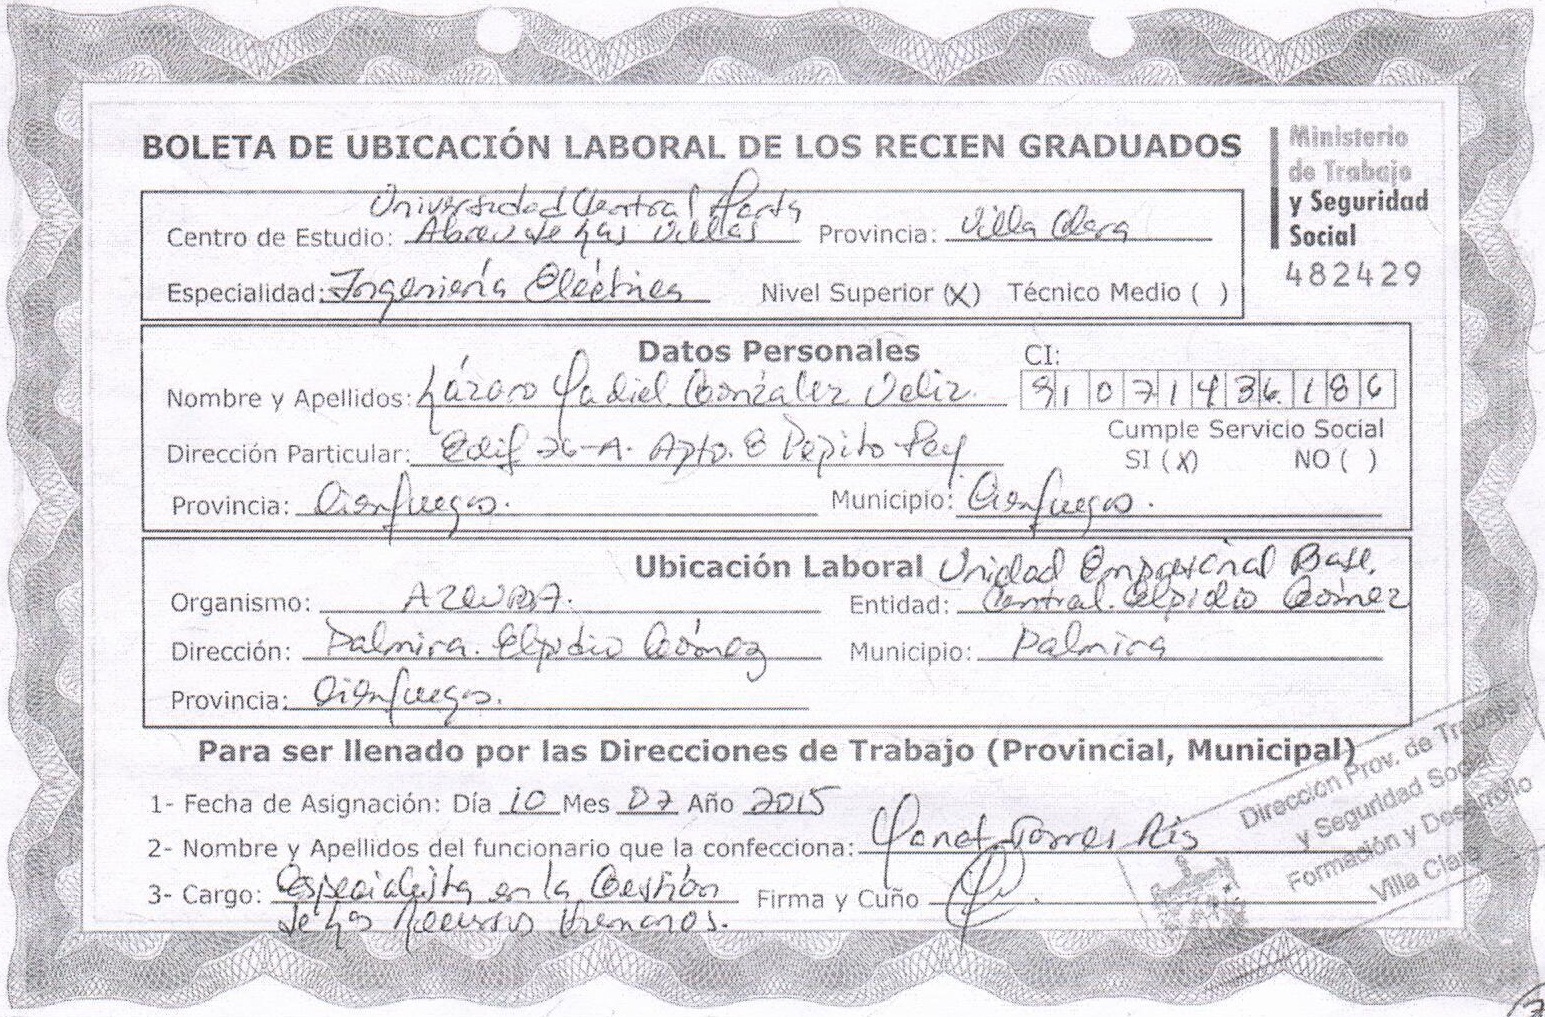 BOLETA DE UBICACIÓN LABORAL DE LOS RECIEN GRADUADOS
Ministerio
de Trabajo
y Seguridad
Social
482429
Universidad Central Marta
Centro de Estudio: Abreu de Las Villas Provincia: Villa Clara
Especialidad: Ingeniería Eléctrica Nivel Superior (X) Técnico Medio ( )
Datos Personales CI:
Nombre y Apellidos: Lázaro Yadiel González Veliz. 91071436186
Dirección Particular: Edif 26-A. Apto. 8 Pepito Tey Cumple Servicio Social
SI (X) NO ( )
Provincia: Cienfuegos. Municipio: Cienfuegos.
Ubicación Laboral Unidad Empresarial Base.
Organismo: AZCUBA. Entidad: Central. Elpidio Gómez
Dirección: Palmira. Elpidio Gómez Municipio: Palmira
Provincia: Cienfuegos.
Para ser llenado por las Direcciones de Trabajo (Provincial, Municipal)
1- Fecha de Asignación: Día 10 Mes 07 Año 2015
2- Nombre y Apellidos del funcionario que la confecciona: Yanet Torres Ris
3- Cargo: Especialista en la Gestión Firma y Cuño
de Los Recursos Humanos.
Dirección Prov. de Trabajo
y Seguridad Social
Formación y Desarrollo
Villa Clara